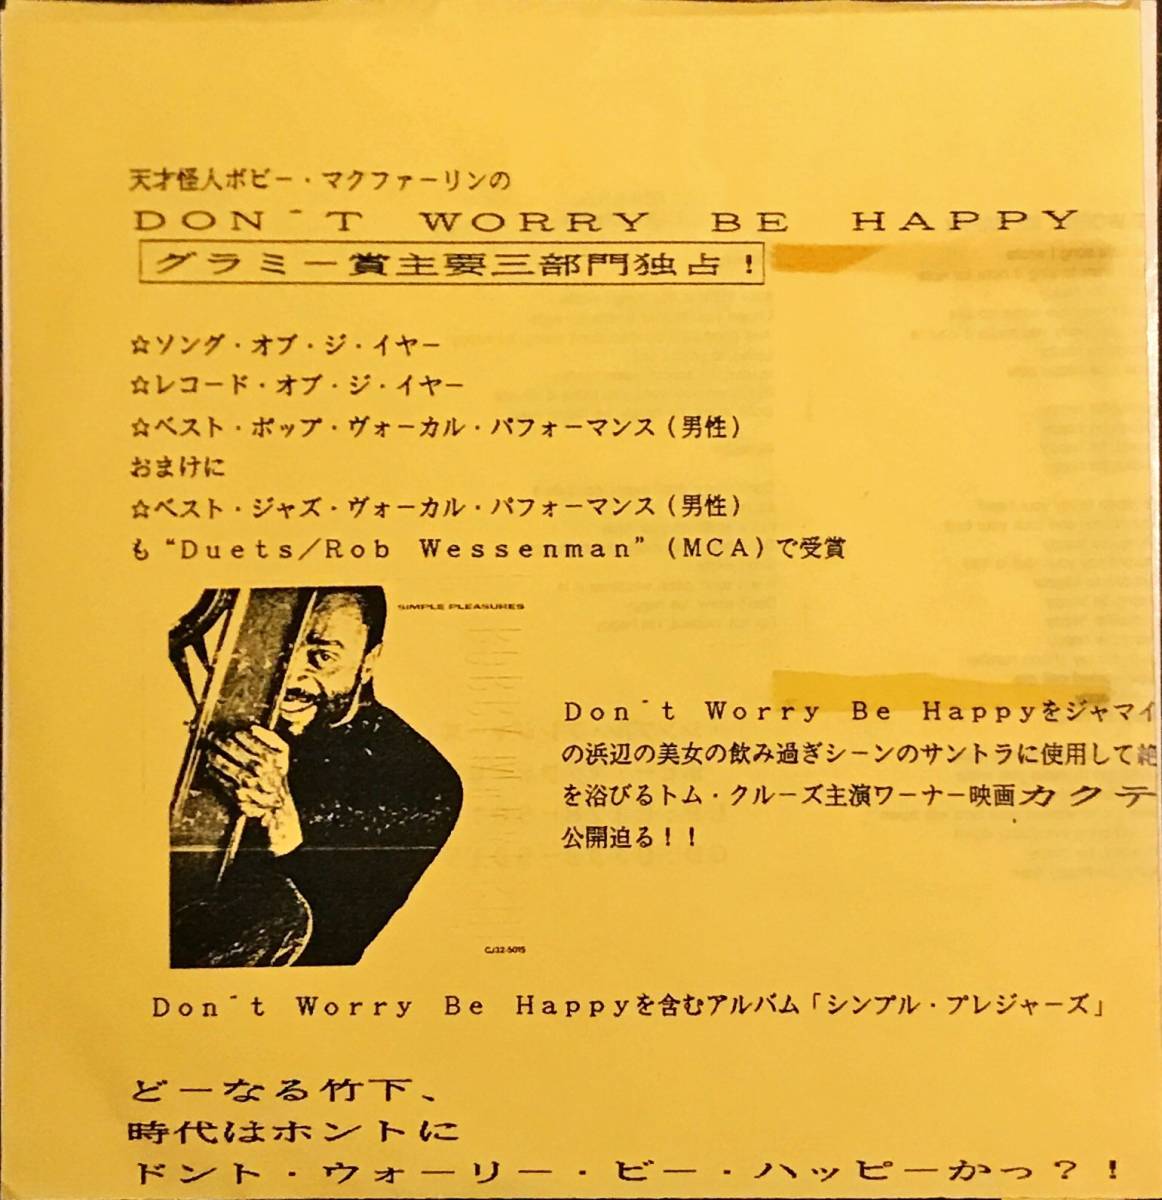 天才怪人ボビー・マクファーリンの
DON´T WORRY BE HAPPY
グラミー賞主要三部門独占!
☆ソング・オブ・ジ・イヤー
☆レコード・オブ・ジ・イヤー
☆ベスト・ポップ・ヴォーカル・パフォーマンス(男性)
おまけに
☆ベスト・ジャズ・ヴォーカル・パフォーマンス(男性)
も“Duets/Rob Wessenman”(MCA)で受賞
SIMPLE PLEASURES
Don´t Worry Be Happyをジャマイ
の浜辺の美女の飲み過ぎシーンのサントラに使用して絶
を浴びるトム・クルーズ主演ワーナー映画カクテ
公開迫る!!
CJ32-5015
Don´t Worry Be Happyを含むアルバム「シンプル・プレジャーズ」
どーなる竹下、
時代はホントに
ドント・ウォーリー・ビー・ハッピーかっ?!